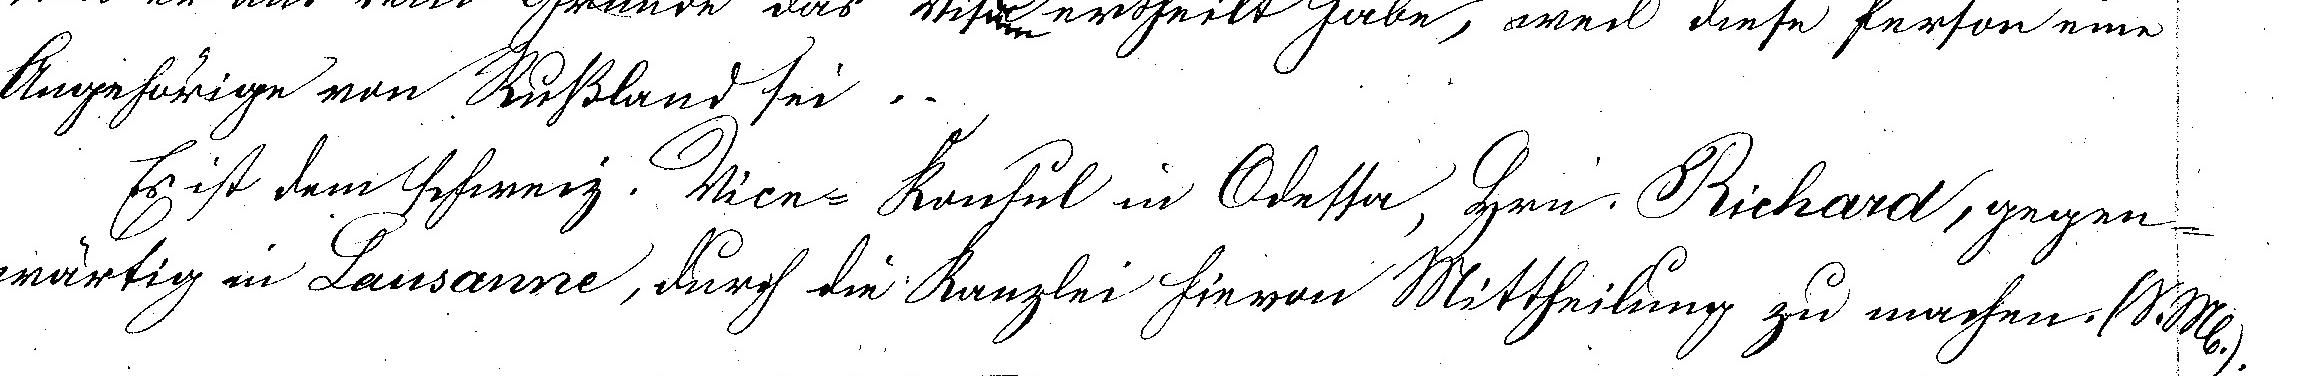 er aus dem Grunde das Visum ertheilt habe, weil diese Person eine
Angehörige von Rußland sei.
Es ist dem schweiz. Vice-Konsul in Odessa, Hrn. Richard, gegen-
wärtig in Lausanne, durch die Kanzlei hievon Mittheilung zu machen.